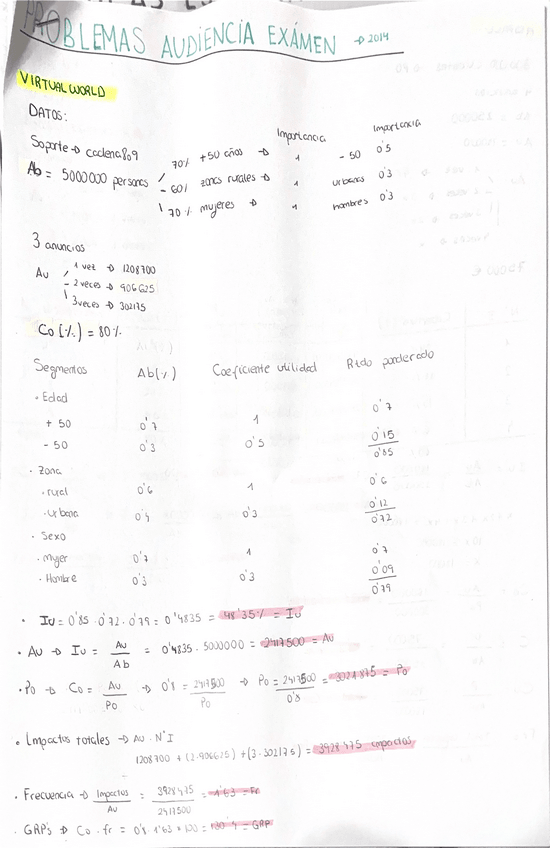 PROBLEMAS AUDIENCIA EXÁMEN → 2014
VIRTUAL WORLD
DATOS:
Importancia Importancia
Soporte → cadena 809 70% +50 años → 1 - 50 0'5
Ab = 5000000 personas - 60% zonas rurales → 1 urbanas 0'3
70% mujeres → 1 hombres 0'3
3 anuncios
1 vez → 1208700
Au - 2 veces → 906625
3 veces → 302175
Co (%) = 80%
Segmentos Ab(%) Coeficiente utilidad Rtdo ponderado
· Edad
+ 50 0'7 1 0'7
- 50 0'3 0'5 0'15
0'85
· Zona
· rural 0'6 1 0'6
· Urbana 0'4 0'3 0'12
0'72
· Sexo
· Mujer 0'7 1 0'7
· Hombre 0'3 0'3 0'09
0'79
· IU = 0'85 · 0'72 · 0'79 = 0'4835 = 48'35% = IU
· AU → IU = AU / Ab = 0'4835 · 5000000 = 2417500 = AU
· Po → Co = AU / Po → 0'8 = 2417500 / Po → Po = 2417500 / 0'8 = 3021875 = Po
· Impactos totales → AU · Nº I
1208700 + (2·906625) + (3·302175) = 3928475 impactos
· Frecuencia → Impactos / AU = 3928475 / 2417500 = 1'63 = Fr
· GRP's → Co · fr = 0'8 · 1'63 × 100 = 130'4 = GRP